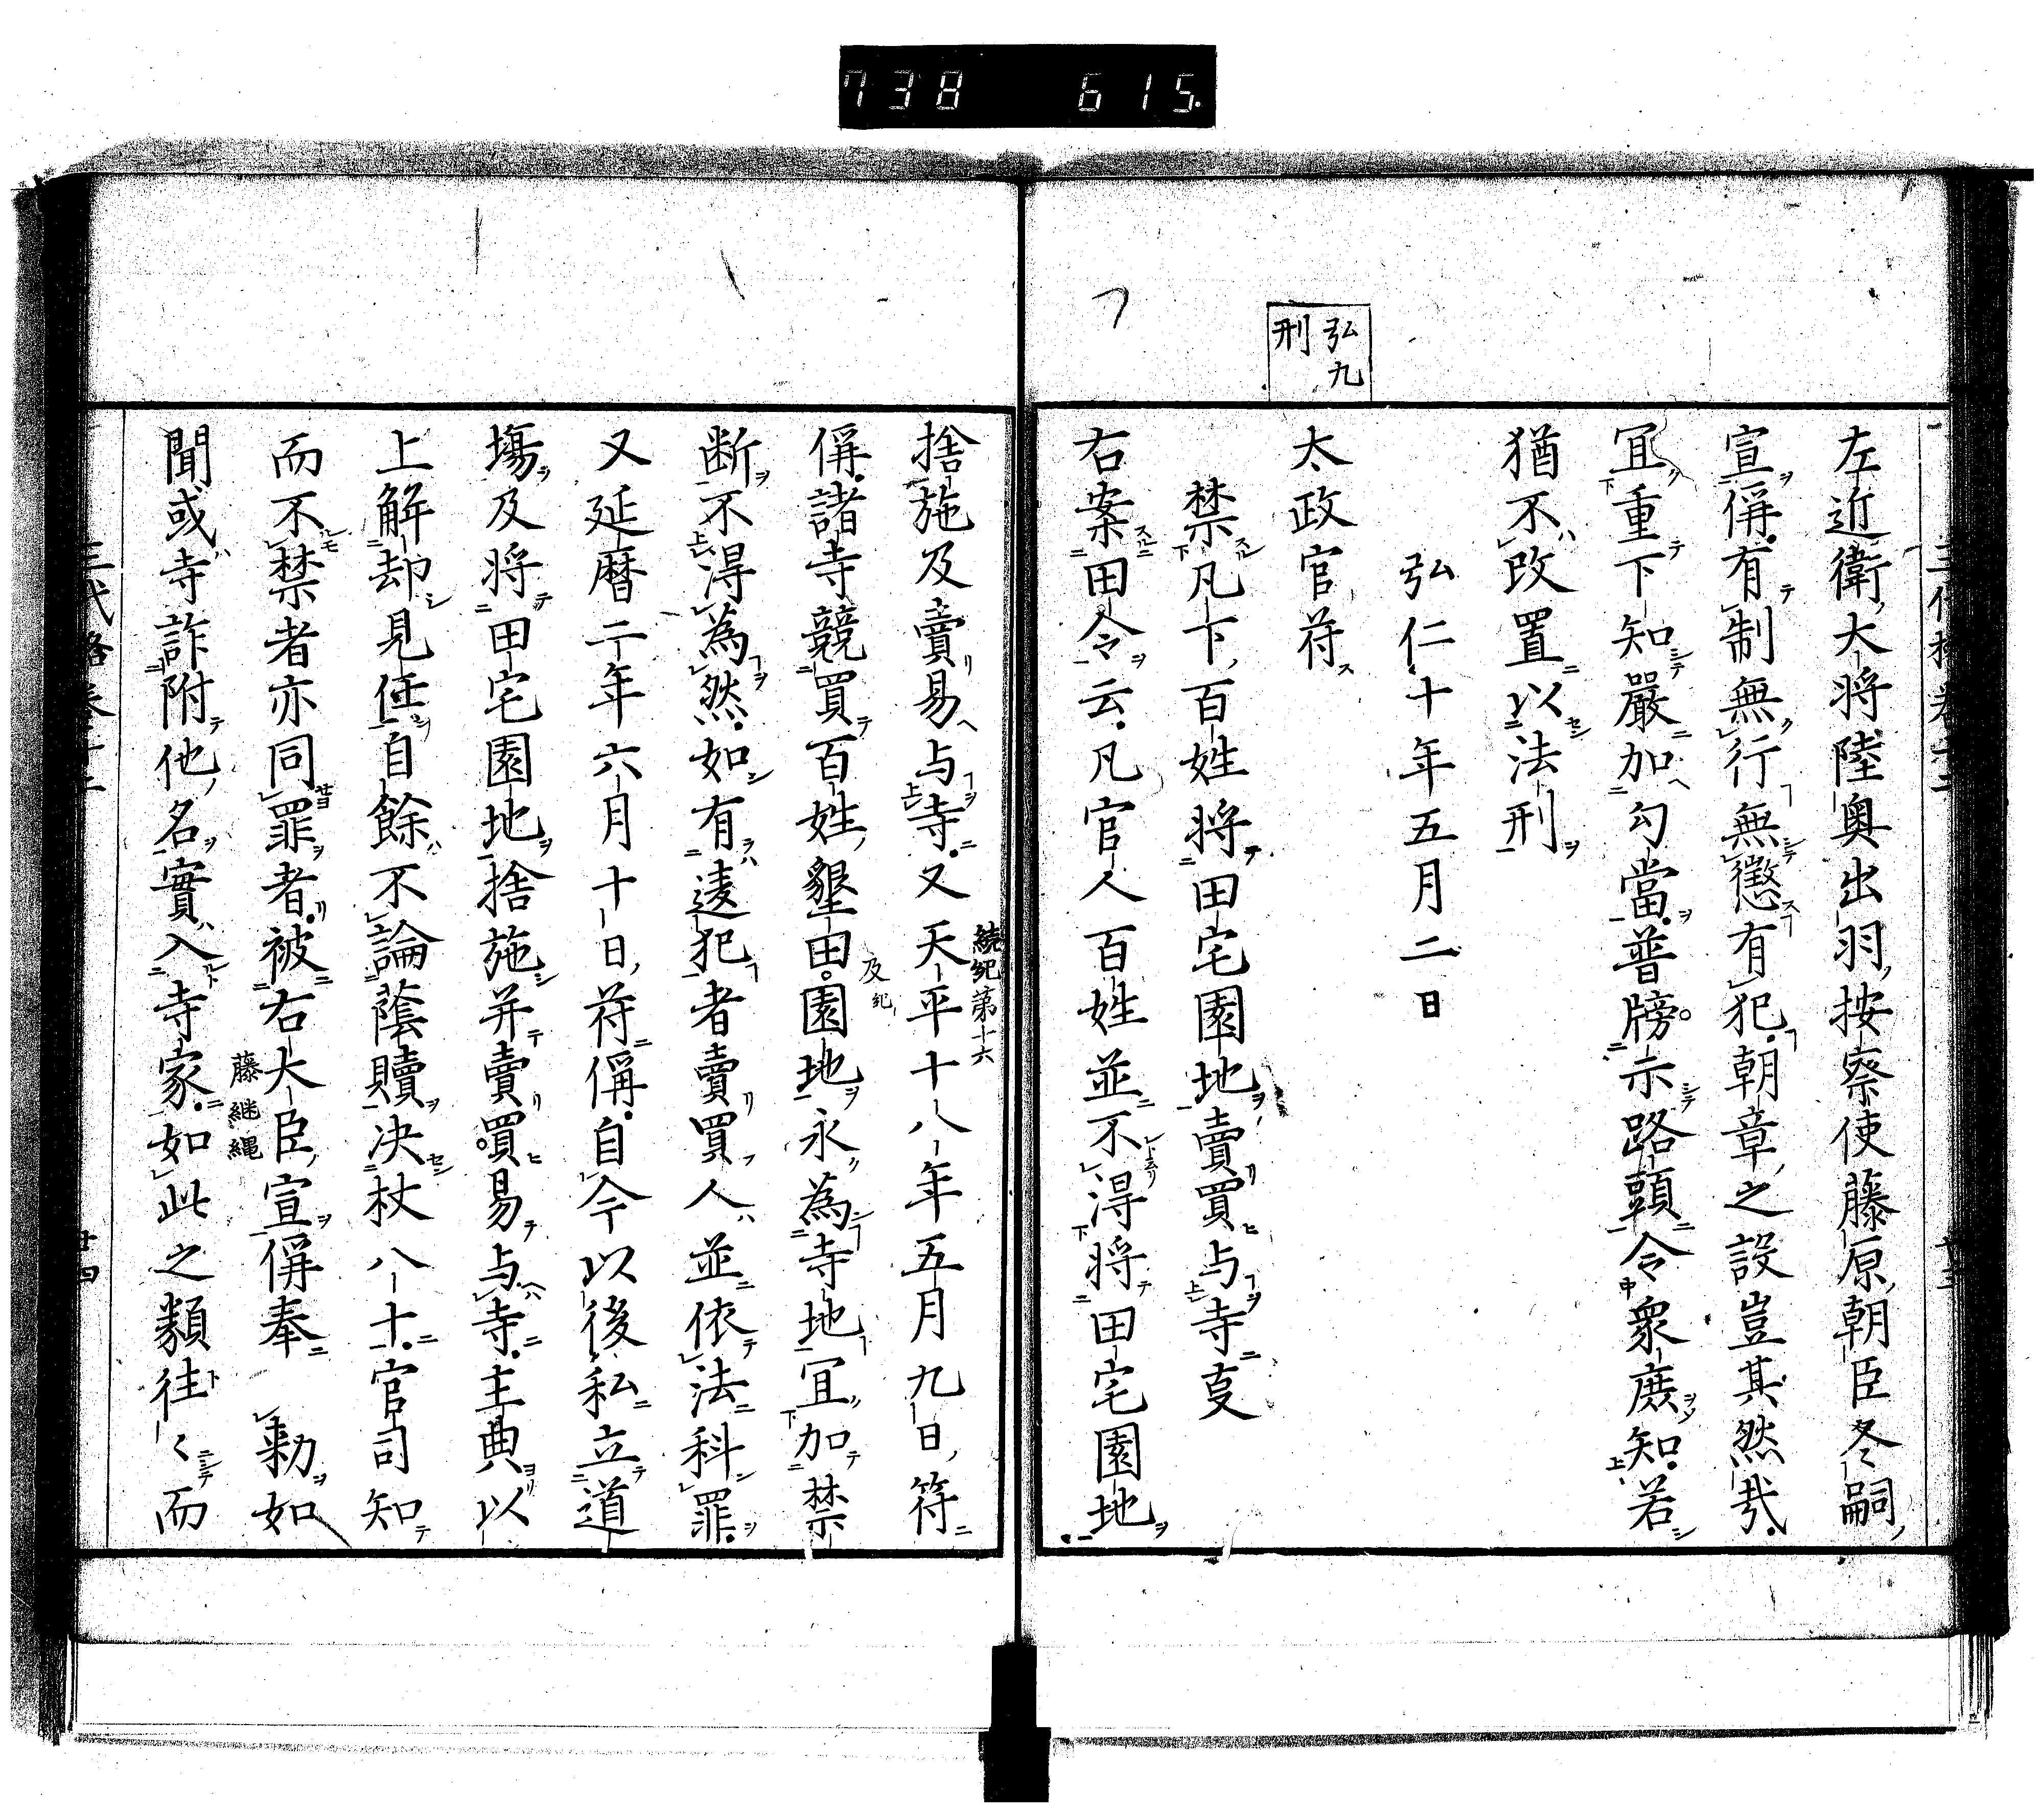 738 615.
左近衛大将陸奥出羽按察使藤原朝臣冬嗣
宣偁有制無行無懲有犯朝章之設豈其然哉
冝重下知嚴加勾當普牓示路頭令衆庶知若
猶不改置以法刑
弘仁十年五月二日
弘九
刑
太政官符
禁凡下百姓将田宅園地賣買与寺㕝
右案田令云凡官人百姓並不得将田宅園地
捨施及賣易与寺又天平十八年五月九日符
続紀第十六
偁諸寺競買百姓墾田園地永為寺地冝加禁
及紀
断不得為然如有違犯者賣買人並依法科罪
又延暦二年六月十日符偁自今以後私立道
塲及将田宅園地捨施并賣買易与寺主典以
上解却見任自餘不論蔭贖决杖八十官司知
而不禁者亦同罪者被右大臣宣偁奉 勅如
藤継縄
聞或寺詐附他名實入寺家如此之類往〻而